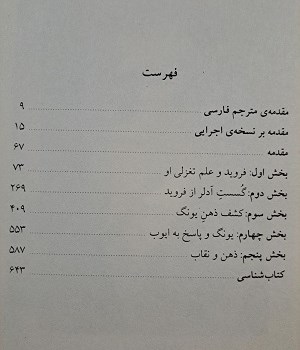 فهرست
مقدمه‌ی مترجم فارسی ۹
مقدمه بر نسخه‌ی اجرایی ۱۵
مقدمه ۶۷
بخش اول: فروید و علم تغزلی او ۷۳
بخش دوم: گُسستِ آدلر از فروید ۲۶۹
بخش سوم: کشف ذهنِ یونگ ۴۰۹
بخش چهارم: یونگ و پاسخ به ایوب ۵۵۳
بخش پنجم: ذهن و نقاب ۵۸۷
کتاب‌شناسی ۶۴۳